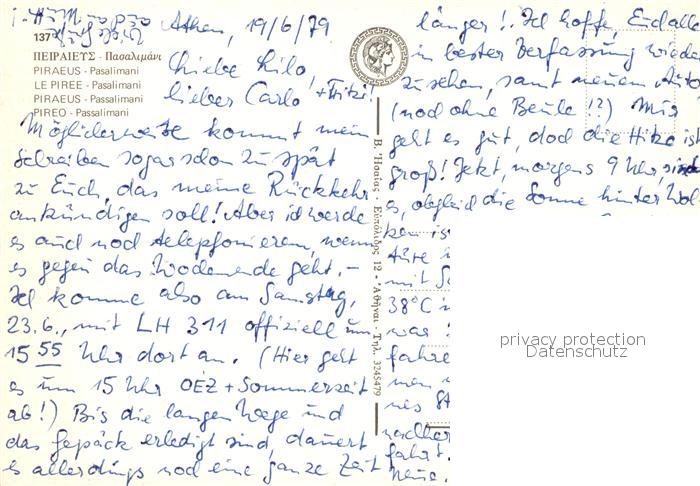 Athen, 19/6/79
137
ΠΕΙΡΑΙΕΥΣ - Πασαλιμάνι
PIRAEUS - Pasalimani
LE PIREE - Pasalimani
PIRAEUS - Passalimani
PIREO - Passalimani
Liebe Lilo,
lieber Carlo + Fritzi!
Möglicherweise kommt mein
Schreiben sogar schon zu spät
zu Euch, das meine Rückkehr
ankündigen soll! Aber ich werde
es auch noch telephonieren, wenn
es gegen das Wochenende geht. –
Ich komme also am Samstag,
23.6., mit LH 311 offiziell um
15 55 Uhr dort an. (Hier geht
es um 15 Uhr OEZ + Sommerzeit
ab!) Bis die langen Wege und
das Gepäck erledigt sind, dauert
es allerdings noch eine ganze Zeit
Β. Ἡσαΐας - Εὐπόλιδος 12 - Ἀθῆναι - Τηλ. 3245479
länger! Ich hoffe, Euch alle
in bester Verfassung wieder
zu sehen, samt neuem Auto
(noch ohne Beule!?) Mir
geht es gut, doch die Hitze ist
groß! Jetzt, morgens 9 Uhr, sind
es, obgleich die Sonne hinter Wol-
ken is
mit S
38°C
war
fahre
men
nes St
fahrt.
privacy protection
Datenschutz